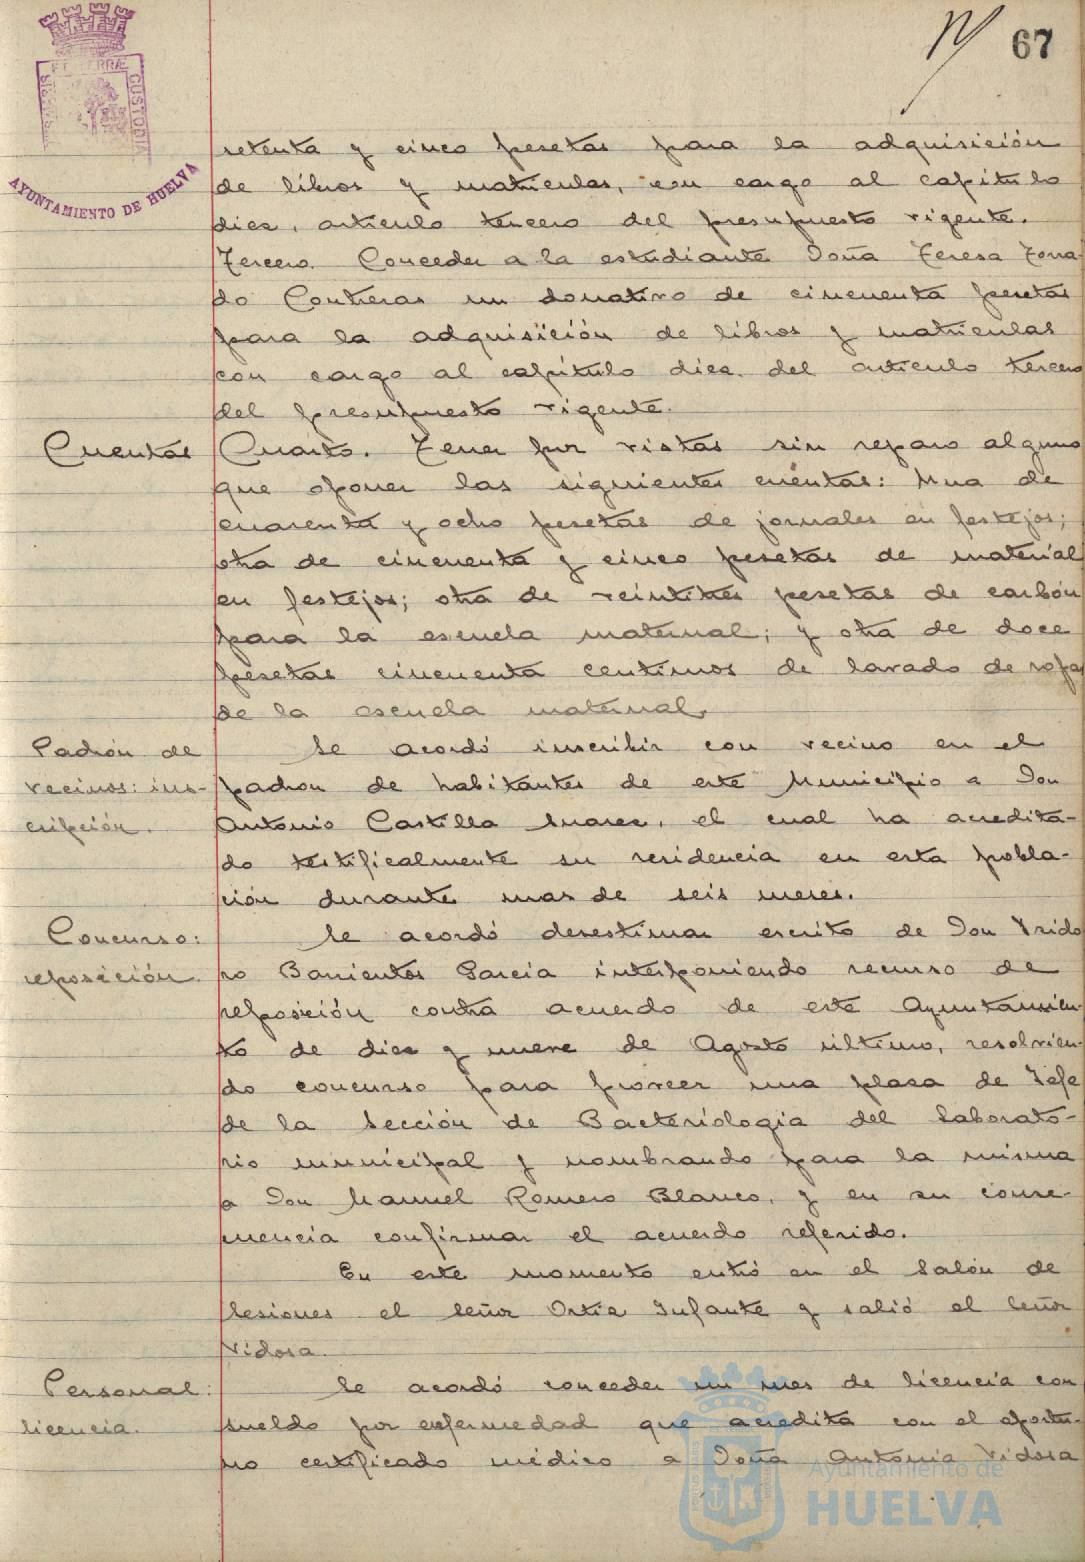 67
PORTUS MARIS ET TERRÆ CUSTODIA
AYUNTAMIENTO DE HUELVA
setenta y cinco pesetas para la adquisición
de libros y matriculas, con cargo al capitulo
diez, articulo tercero del presupuesto vigente.
Tercero. Conceder a la estudiante Doña Teresa
do Contreras un donativo de cincuenta pesetas
para la adquisición de libros y matriculas
con cargo al capitulo diez del articulo tercero
del presupuesto vigente.
Cuentas
Cuarto. Tener por vistas sin reparo alguno
que oponer las siguientes cuentas: Una de
cuarenta y ocho pesetas de jornales en festejos;
otra de cincuenta y cinco pesetas de material
en festejos; otra de veintitres pesetas de carbón
para la escuela maternal; y otra de doce
pesetas cincuenta centimos de lavado de ropas
de la escuela maternal.
Padrón de
vecinos: ins-
cripción.
Se acordó inscribir con vecino en el
padron de habitantes de este Municipio a Don
Antonio Castilla Suarez, el cual ha acredita-
do testificalmente su residencia en esta pobla-
ción durante mas de seis meses.
Concurso:
reposición.
Se acordó desestimar escrito de Don Ysido
ro Barrientos Garcia interponiendo recurso de
reposición contra acuerdo de este Ayuntamien-
to de diez y nueve de Agosto último, resolvien-
do concurso para proveer una plaza de Jefe
de la Sección de Bacteriologia del Laborato-
rio municipal y nombrando para la misma
a Don Manuel Romero Blanco, y en su conse-
cuencia confirmar el acuerdo referido.
En este momento entró en el Salón de
Sesiones el Señor Ortiz Infante y salió el Señor
Vidosa.
Personal:
licencia.
Se acordó conceder un mes de licencia con
sueldo por enfermedad que acredita con el oportu-
no certificado médico a Doña Antonia Vidosa
Ayuntamiento de
HUELVA